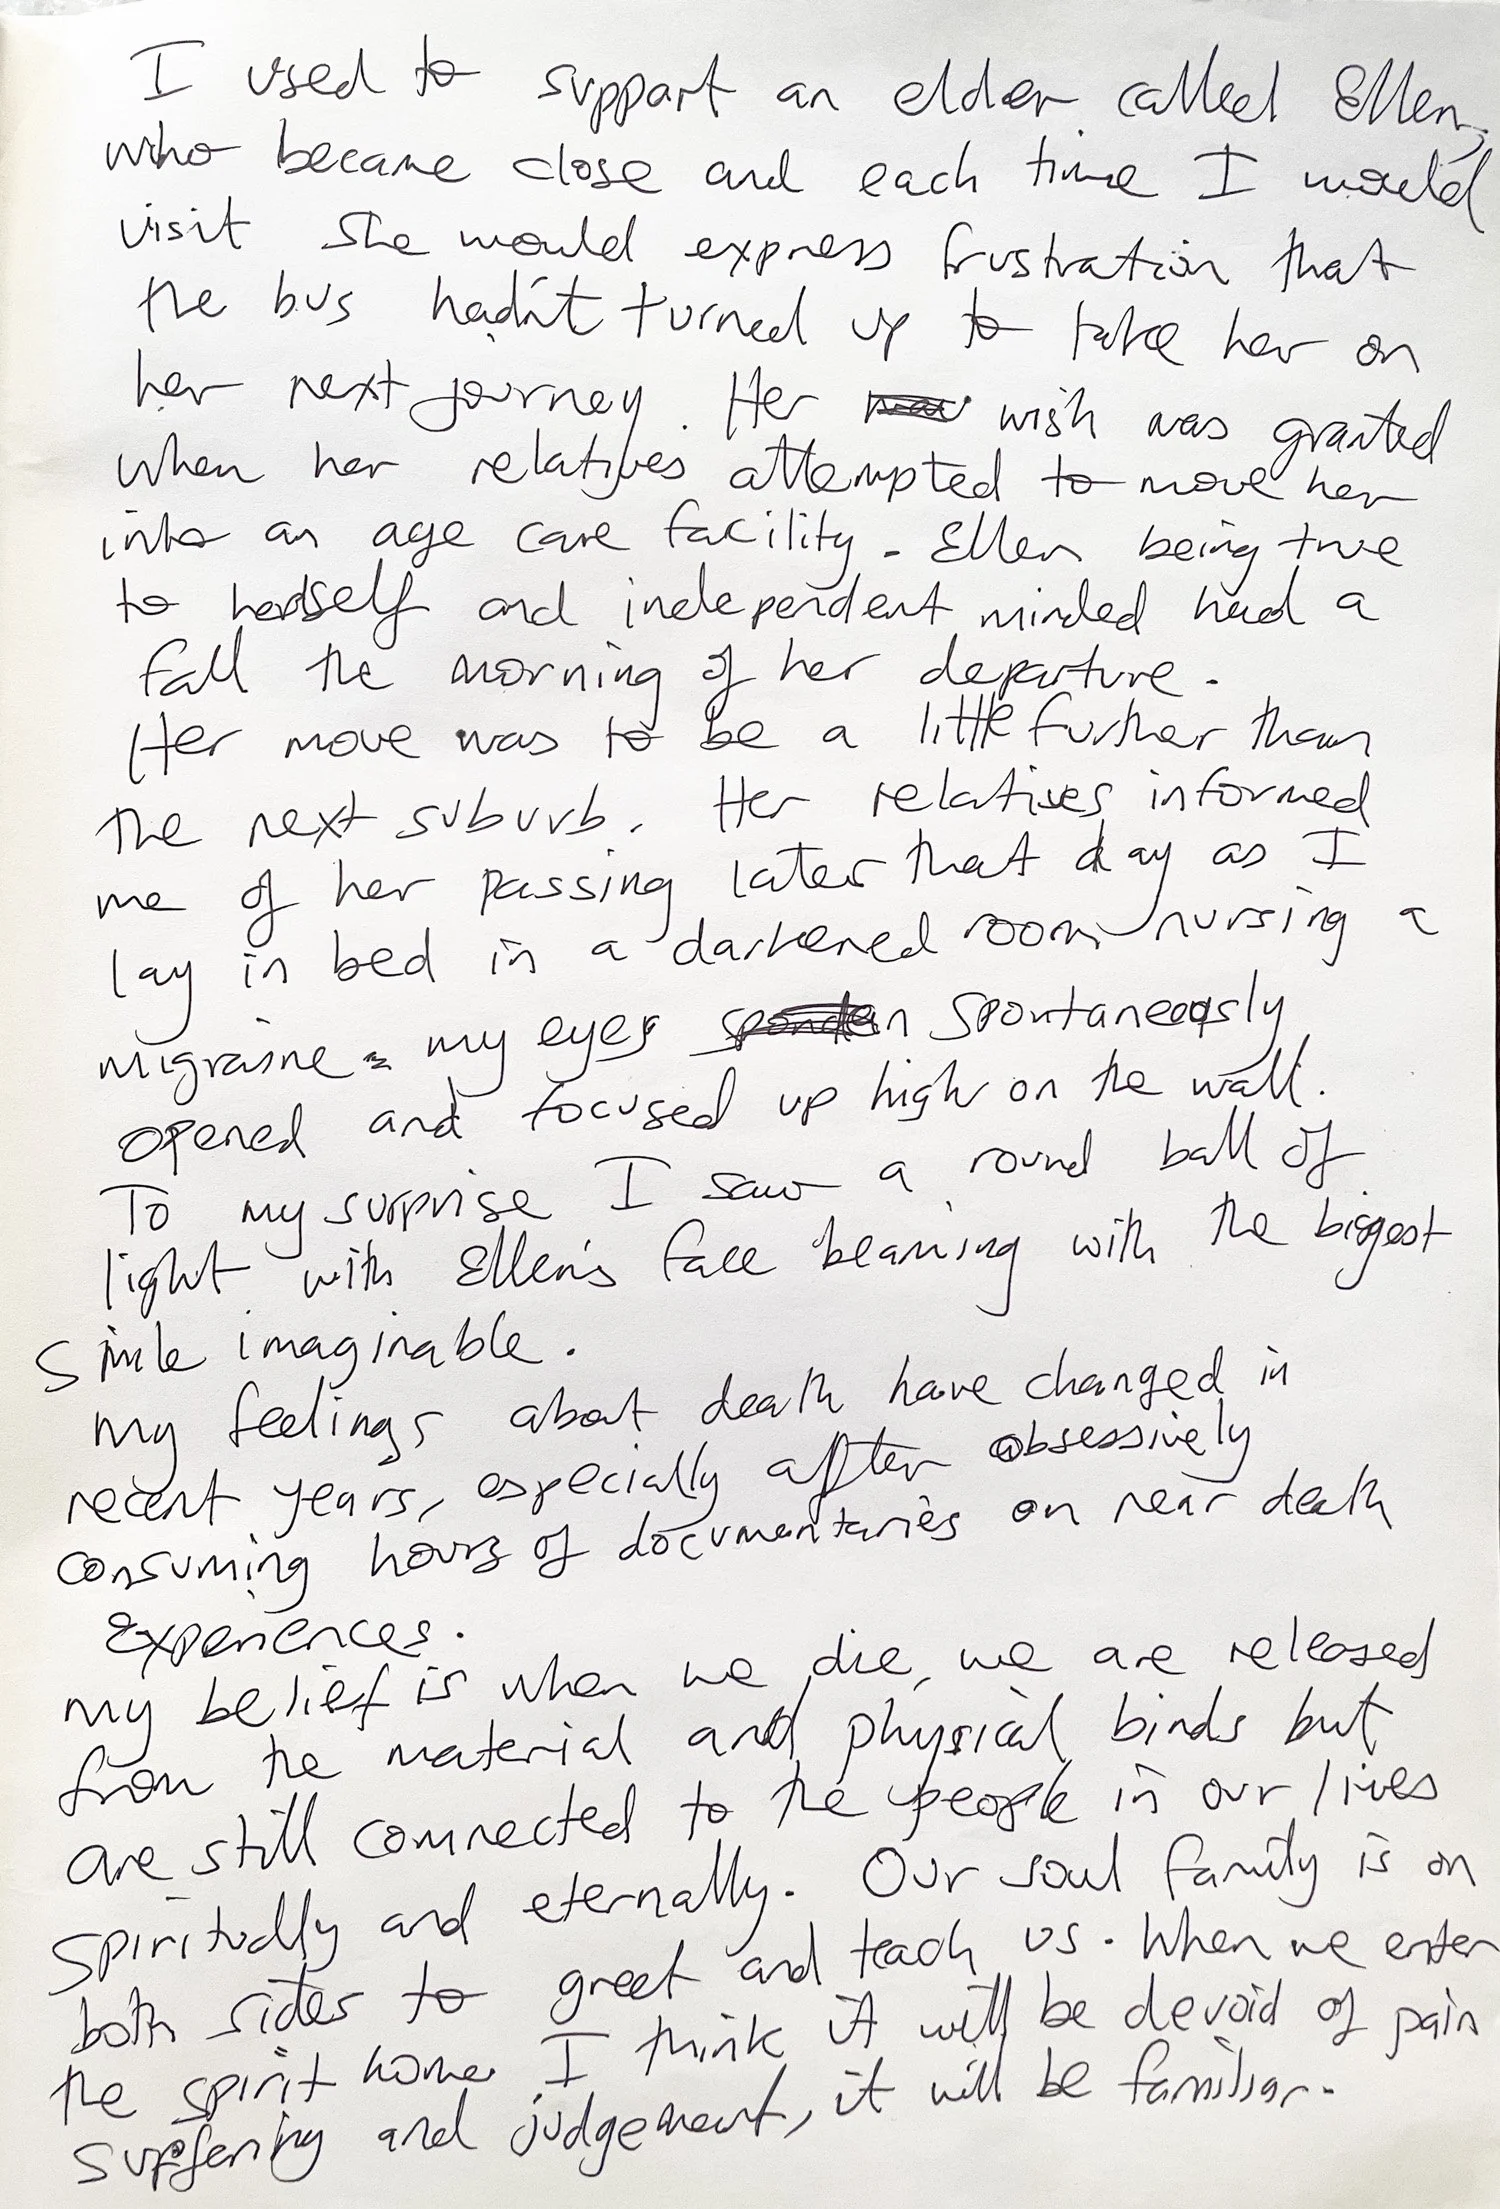 I used to support an elder called Ellen,
who became close and each time I would
visit she would express frustration that
the bus hadn't turned up to take her on
her next journey. Her wish was granted
when her relatives attempted to move her
into an age care facility. Ellen being true
to herself and independent minded had a
fall the morning of her departure.
Her move was to be a little further than
the next suburb. Her relatives informed
me of her passing later that day as I
lay in bed in a darkened room nursing a
migraine - my eyes spontaneously
opened and focused up high on the wall.
To my surprise I saw a round ball of
light with Ellen's face beaming with the biggest
smile imaginable.
My feelings about death have changed in
recent years, especially after obsessively
consuming hours of documentaries on near death
experiences.
My belief is when we die, we are released
from the material and physical binds but
are still connected to the people in our lives
spiritually and eternally. Our soul family is on
both sides to greet and teach us. When we enter
the spirit home I think it will be devoid of pain
suffering and judgement, it will be familiar.